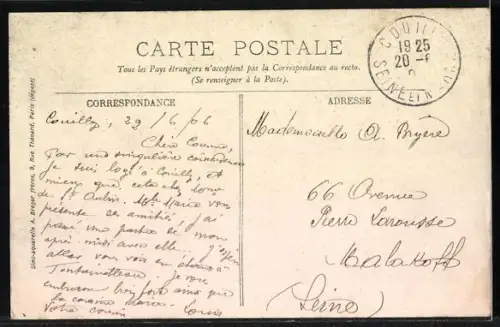 CARTE POSTALE
Tous les Pays étrangers n'acceptent pas la Correspondance au recto.
(Se renseigner à la Poste.)
COUILLY
19 25
20 -6
SEINE ET M
CORRESPONDANCE
ADRESSE
Simili-aquarelle A. Breger, Frères, 9, Rue Thénard, Paris
Couilly, 29/6/06
Chère Cousine,
Par une singulière coïncidence
je suis logé à Couilly, et
mieux que cela chez
de St Aubin. Marie vous
présente ses amitiés, j'ai
passé une partie de mon
après-midi avec elle.
allait vous voir en
Fontainebleau. Je vous
embrasse bien fort ainsi que
la cousine Marie.
Votre cousin Louis
Mademoiselle A. Bryère
66 Avenue
Pierre Larousse
Malakoff
(Seine)